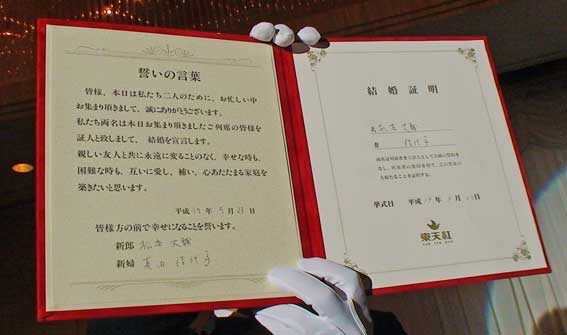 誓いの言葉
皆様、本日は私たち二人のために、お忙しい中
お集まり頂きまして、誠にありがとうございます。
私たち両名は本日お集まり頂きましたご列席の皆様を
証人と致しまして、結婚を宣言します。
親しい友人と共に永遠に変ることのなく、幸せな時も、
困難な時も、互いに愛し、補い、心あたたまる家庭を
築きたいと思います。
平成 19 年 5月 23 日
皆様方の前で幸せになることを誓います。
新郎 松本 大
新婦
結婚証明
夫 松本 大
妻
挙式日 平成 19 年 5 月 23 日
東天紅